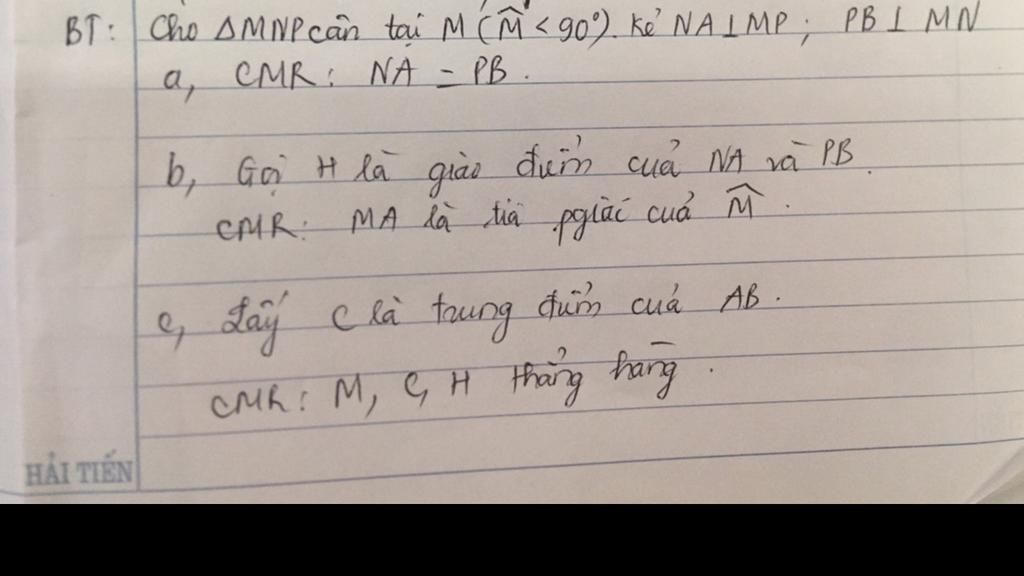 BT: Cho ΔMNP cân tại M (M̂ < 90°). Kẻ NA⊥MP; PB⊥MN
a, CMR: NA = PB.
b, Gọi H là giao điểm của NA và PB.
CMR: MA là tia pgiác của M̂.
c, Lấy C là trung điểm của AB.
CMR: M, C, H thẳng hàng.
HẢI TIẾN